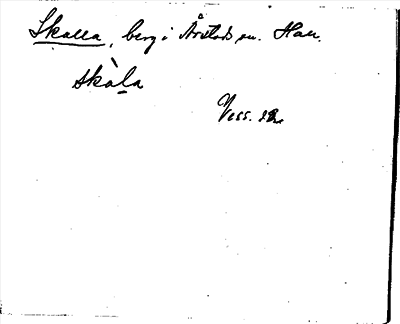 Skalla, berg i Årstads sn. Hall.
skàla
Vess. 22.